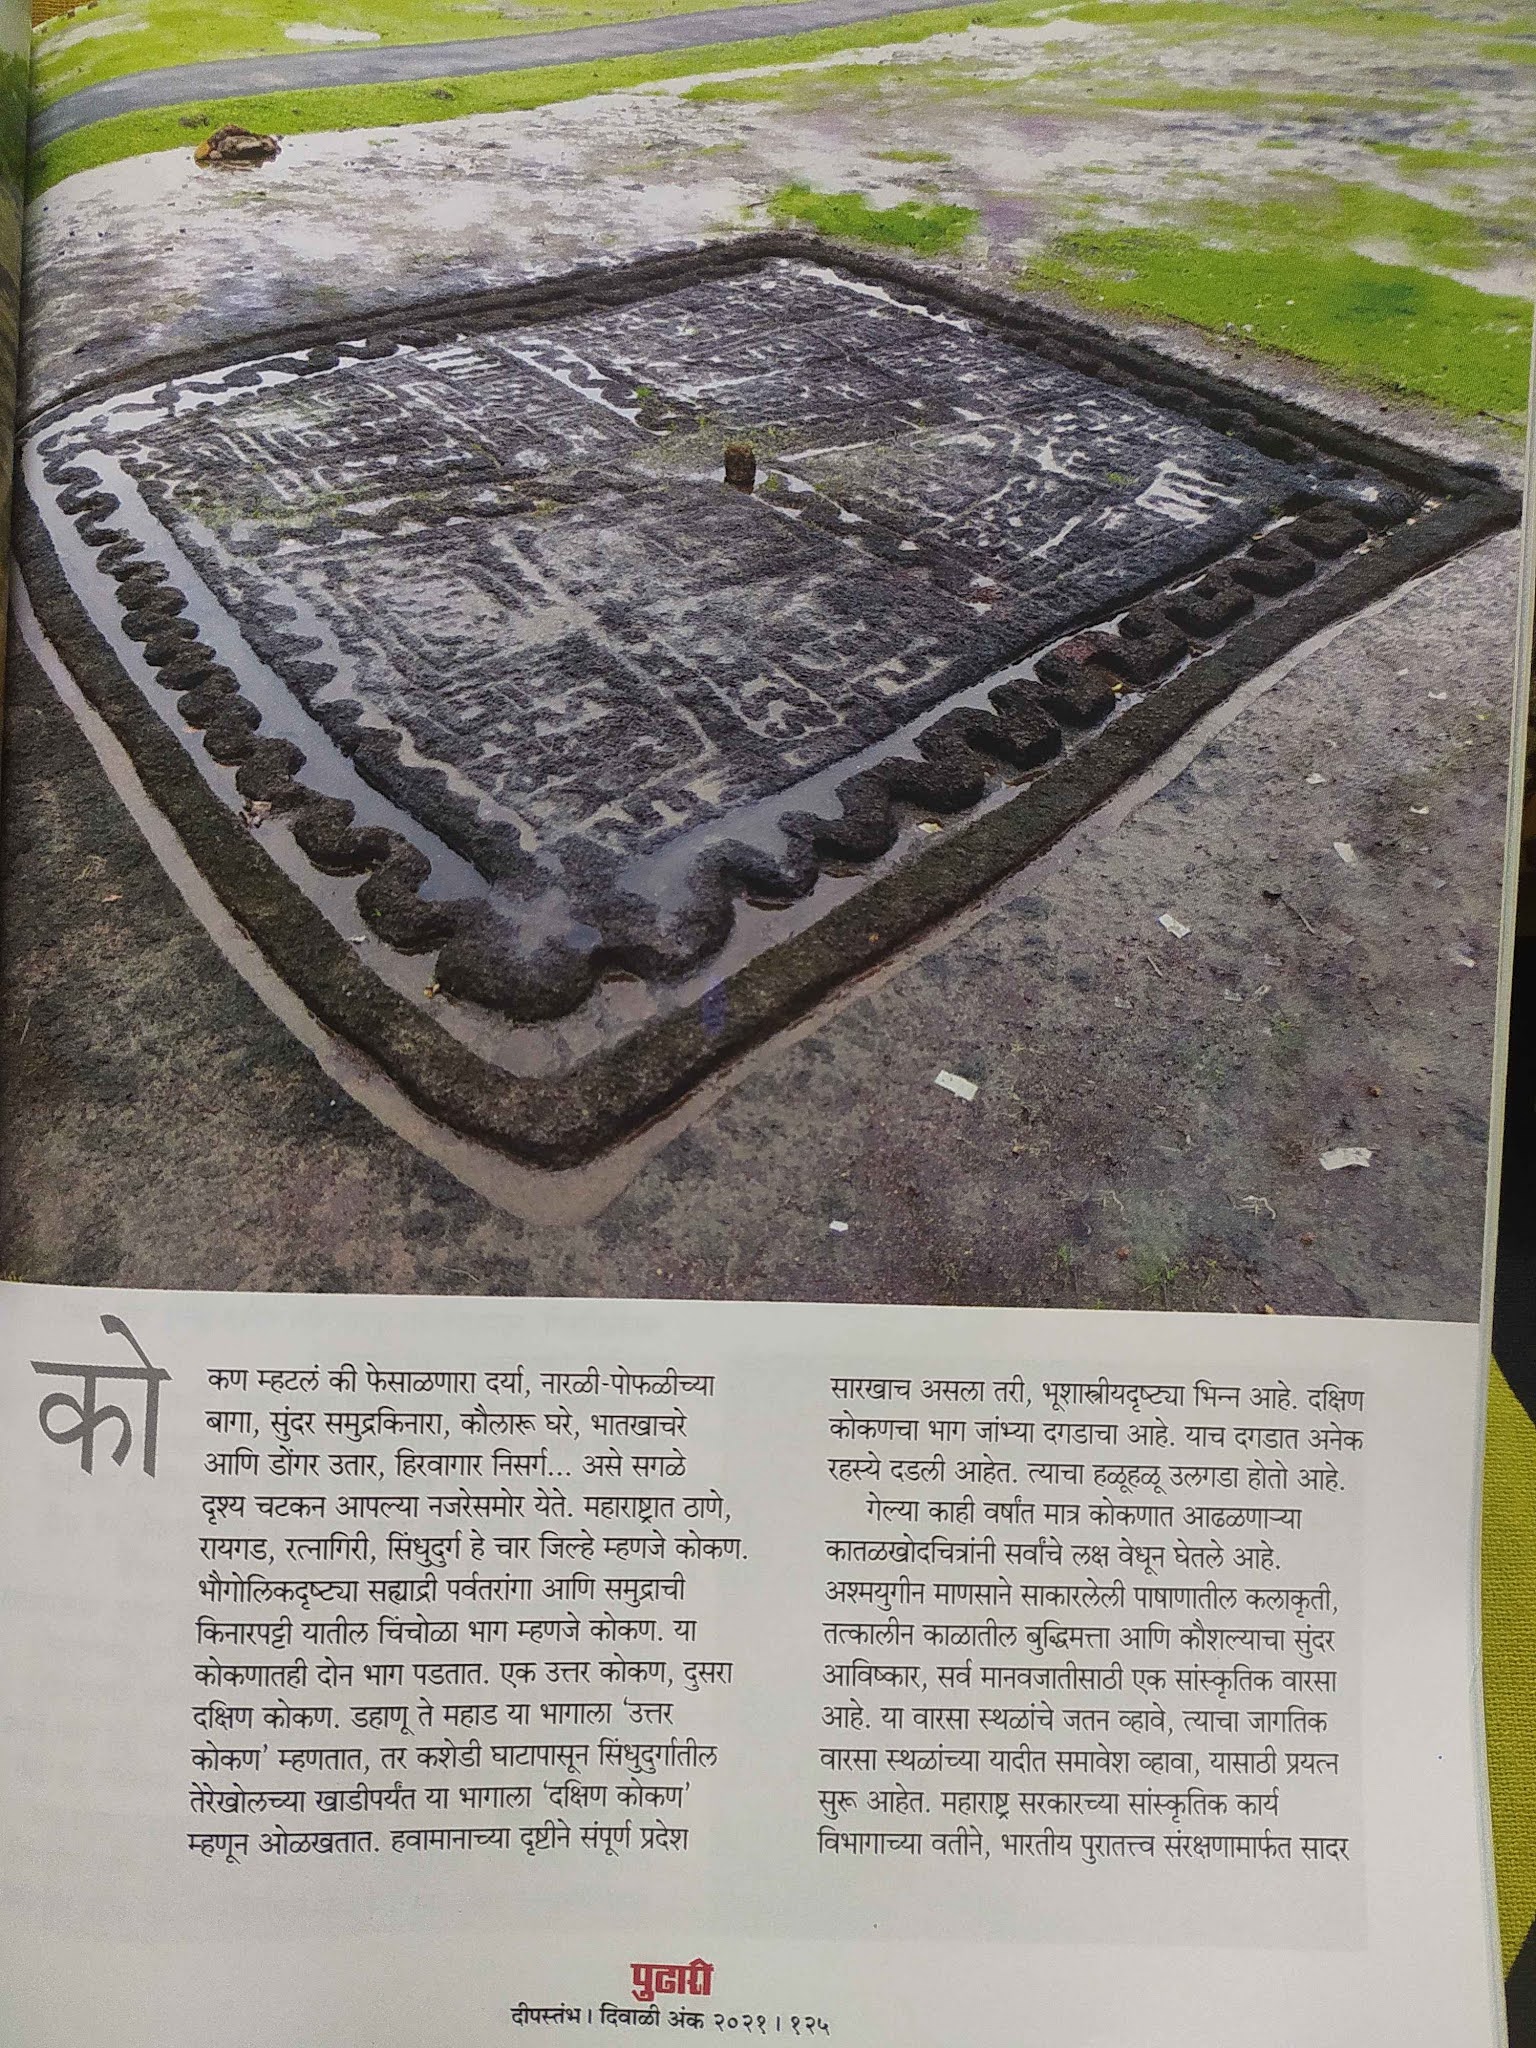 कोकण म्हटलं की फेसाळणारा दर्या, नारळी-पोफळीच्या
बागा, सुंदर समुद्रकिनारा, कौलारू घरे, भातखाचरे
आणि डोंगर उतार, हिरवागार निसर्ग... असे सगळे
दृश्य चटकन आपल्या नजरेसमोर येते. महाराष्ट्रात ठाणे,
रायगड, रत्नागिरी, सिंधुदुर्ग हे चार जिल्हे म्हणजे कोकण.
भौगोलिकदृष्ट्या सह्याद्री पर्वतरांगा आणि समुद्राची
किनारपट्टी यातील चिंचोळा भाग म्हणजे कोकण. या
कोकणातही दोन भाग पडतात. एक उत्तर कोकण, दुसरा
दक्षिण कोकण. डहाणू ते महाड या भागाला ‘उत्तर
कोकण’ म्हणतात, तर कशेडी घाटापासून सिंधुदुर्गातील
तेरेखोलच्या खाडीपर्यंत या भागाला ‘दक्षिण कोकण’
म्हणून ओळखतात. हवामानाच्या दृष्टीने संपूर्ण प्रदेश
सारखाच असला तरी, भूशास्त्रीयदृष्ट्या भिन्न आहे. दक्षिण
कोकणचा भाग जांभ्या दगडाचा आहे. याच दगडात अनेक
रहस्ये दडली आहेत. त्याचा हळूहळू उलगडा होतो आहे.
गेल्या काही वर्षांत मात्र कोकणात आढळणाऱ्या
कातळखोदचित्रांनी सर्वांचे लक्ष वेधून घेतले आहे.
अश्मयुगीन माणसाने साकारलेली पाषाणातील कलाकृती,
तत्कालीन काळातील बुद्धिमत्ता आणि कौशल्याचा सुंदर
आविष्कार, सर्व मानवजातीसाठी एक सांस्कृतिक वारसा
आहे. या वारसा स्थळांचे जतन व्हावे, त्याचा जागतिक
वारसा स्थळांच्या यादीत समावेश व्हावा, यासाठी प्रयत्न
सुरू आहेत. महाराष्ट्र सरकारच्या सांस्कृतिक कार्य
विभागाच्या वतीने, भारतीय पुरातत्त्व संरक्षणामार्फत सादर
पुढारी
दीपस्तंभ। दिवाळी अंक २०२१। १२५